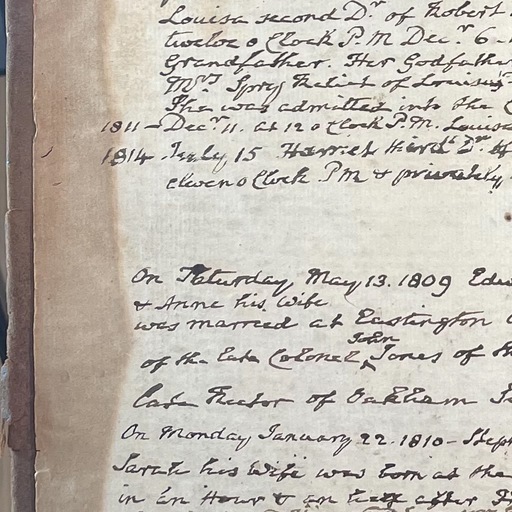 Louisa second Dr. of Robert
twelve o Clock P.M Decr. 6
Grandfather. Her Godfather
Mrs Spry Relict of Louisa's
She was admitted into the
1811 - Decr. 11. at 12 o Clock P.M. Louisa
1814 July 15 Harriet third Dr. of
eleven o Clock PM & privately
On Saturday, May 13. 1809 Edw
& Anne his wife
was married at Eastington
of the late Colonel John Jones of the
Rector of Oakham
On Monday, January 22. 1810 - Steph
Sarah his Wife was born at the
in an Hour & an half after